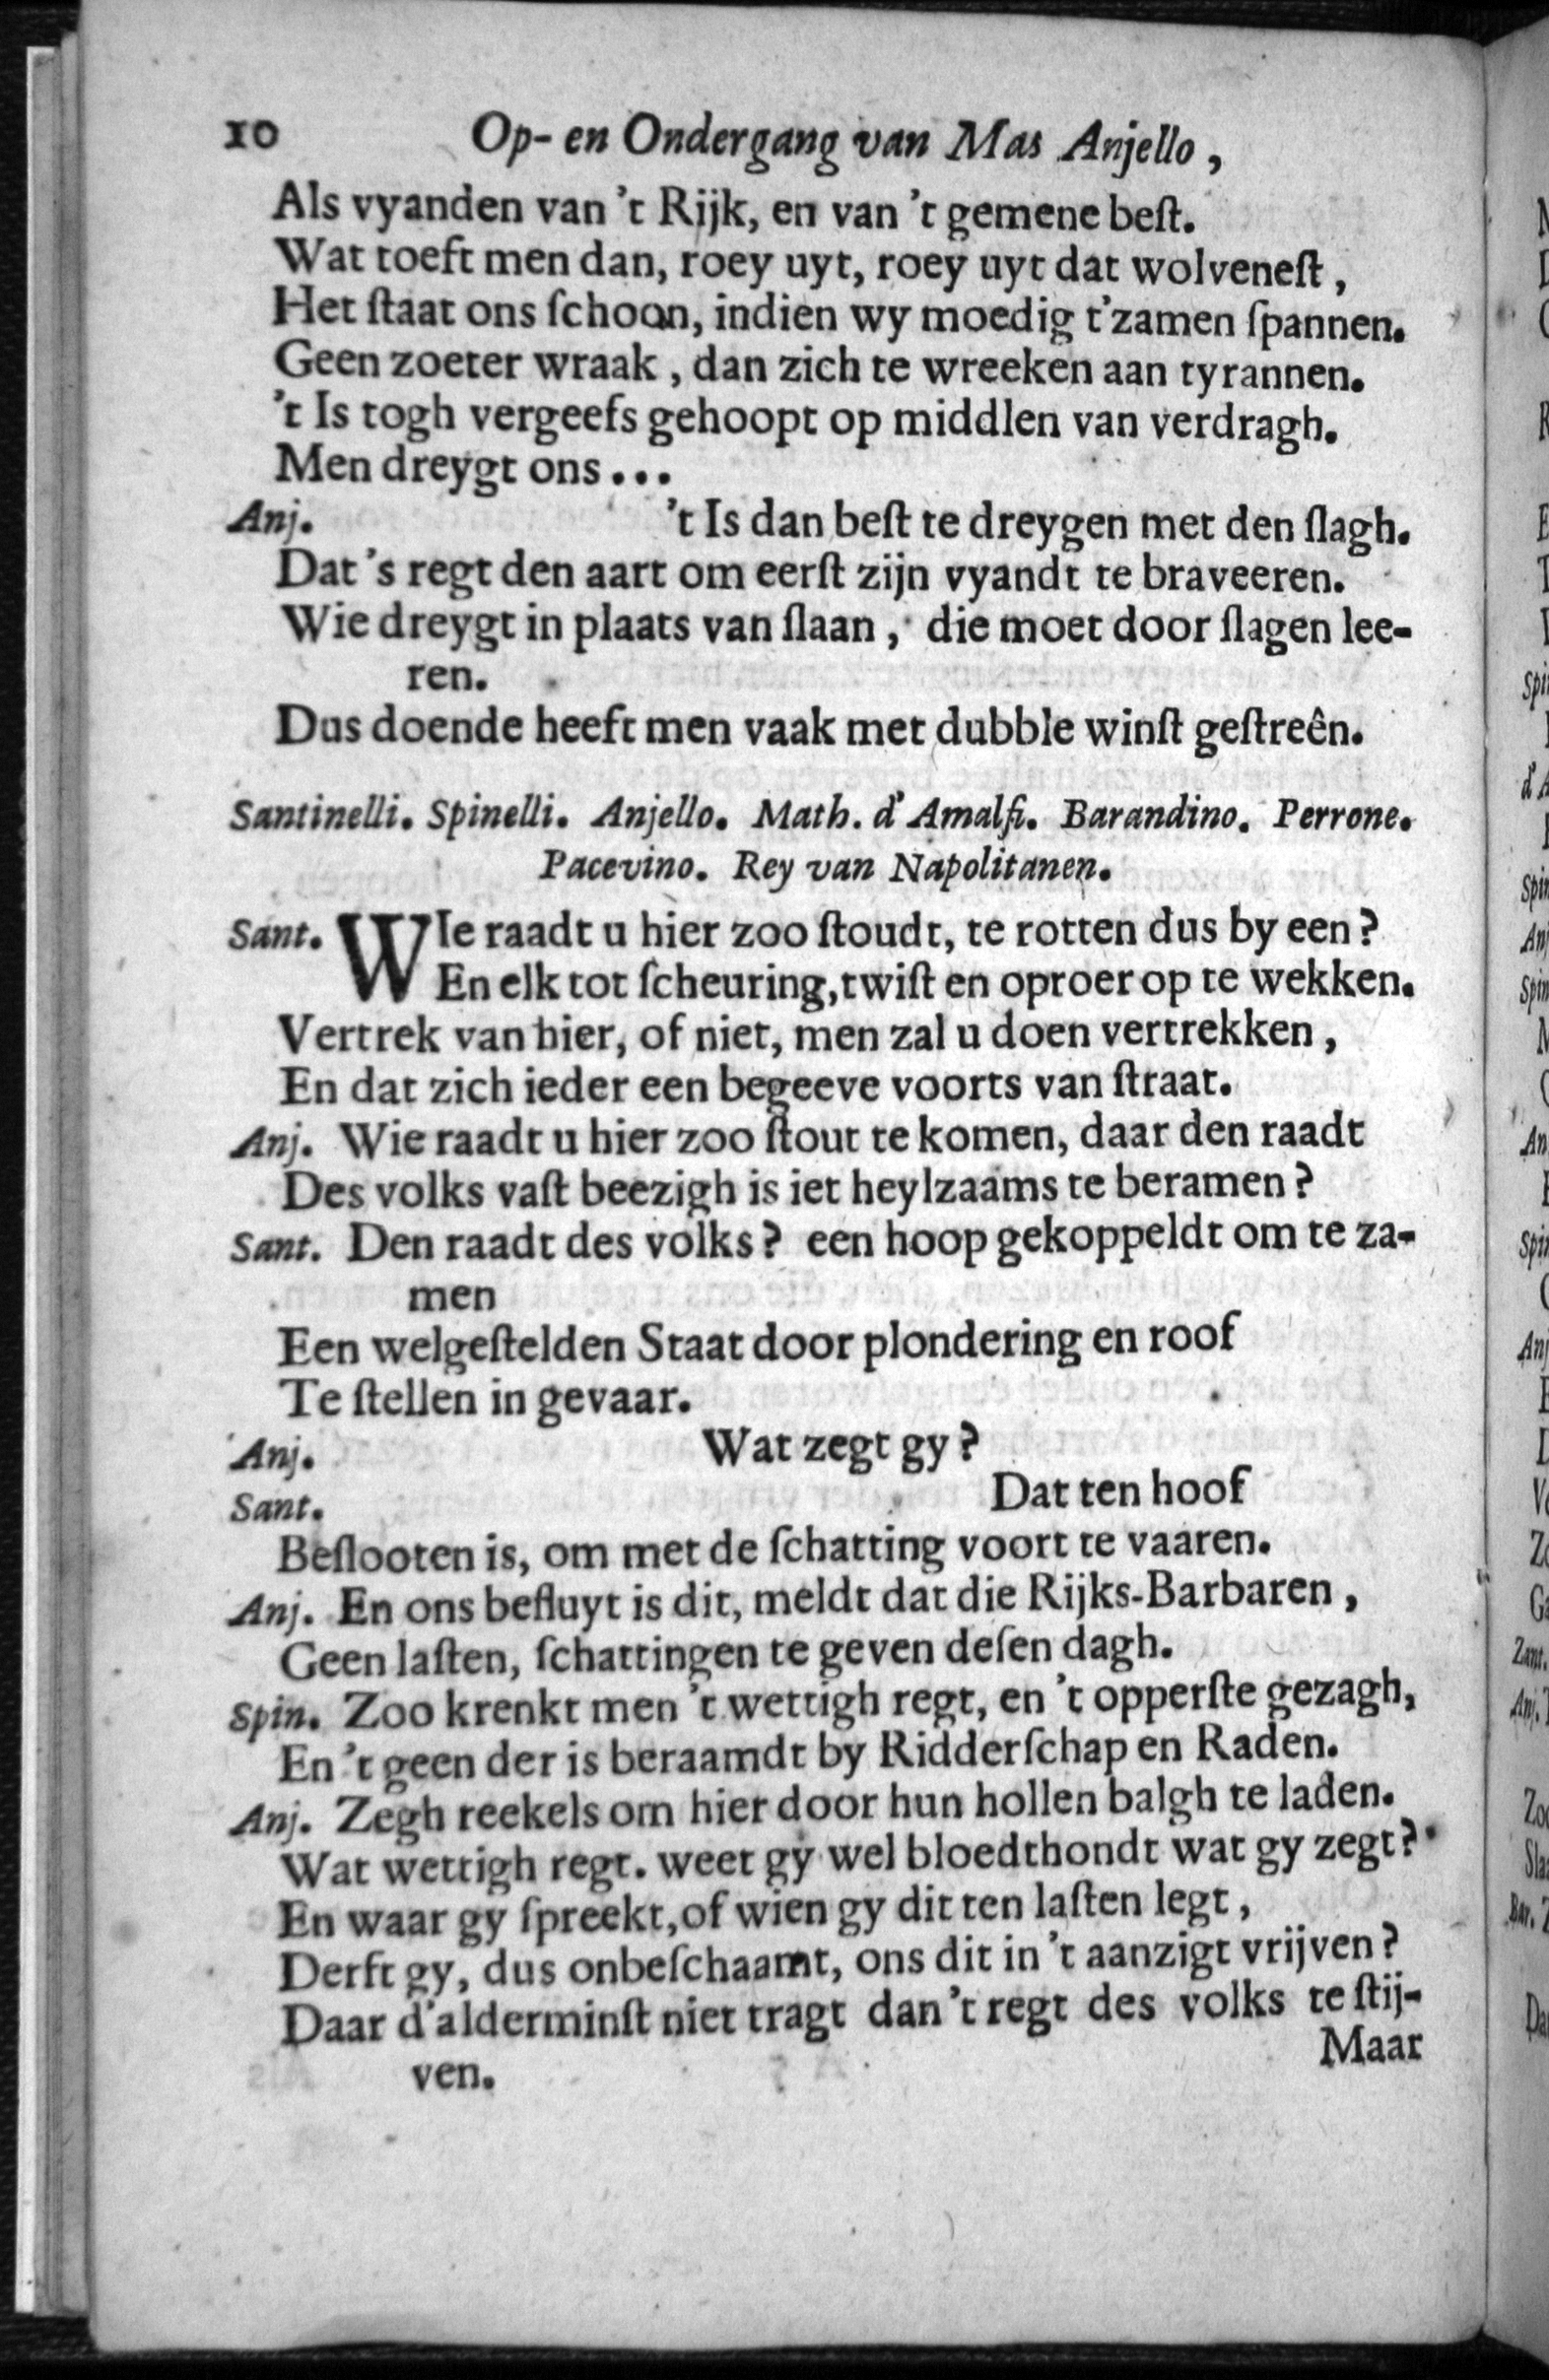 10 Op- en Ondergang van Mas Anjello,
Als vyanden van 't Rijk, en van 't gemene beſt.
Wat toeft men dan, roey uyt, roey uyt dat wolveneſt,
Het ſtaat ons ſchoon, indien wy moedig t'zamen ſpannen.
Geen zoeter wraak, dan zich te wreeken aan tyrannen.
't Is togh vergeefs gehoopt op middlen van verdragh.
Men dreygt ons...
Anj. 't Is dan beſt te dreygen met den ſlagh.
Dat 's regt den aart om eerſt zijn vyandt te braveeren.
Wie dreygt in plaats van ſlaan, die moet door ſlagen lee-
ren.
Dus doende heeft men vaak met dubble winſt geſtreên.
Santinelli. Spinelli. Anjello. Math. d' Amalfi. Barandino. Perrone.
Pacevino. Rey van Napolitanen.
Sant. WIe raadt u hier zoo ſtoudt, te rotten dus by een?
En elk tot ſcheuring, twiſt en oproer op te wekken.
Vertrek van hier, of niet, men zal u doen vertrekken,
En dat zich ieder een begeeve voorts van ſtraat.
Anj. Wie raadt u hier zoo ſtout te komen, daar den raadt
Des volks vaſt beezigh is iet heylzaams te beramen?
Sant. Den raadt des volks? een hoop gekoppeldt om te za-
men
Een welgeſtelden Staat door plondering en roof
Te ſtellen in gevaar.
Anj. Wat zegt gy?
Sant. Dat ten hoof
Beſlooten is, om met de ſchatting voort te vaaren.
Anj. En ons beſluyt is dit, meldt dat die Rijks-Barbaren,
Geen laſten, ſchattingen te geven deſen dagh.
Spin. Zoo krenkt men 't wettigh regt, en 't opperſte gezagh,
En 't geen der is beraamdt by Ridderſchap en Raden.
Anj. Zegh reekels om hier door hun hollen balgh te laden.
Wat wettigh regt. weet gy wel bloedthondt wat gy zegt?
En waar gy ſpreekt, of wien gy dit ten laſten legt,
Derft gy, dus onbeſchaamt, ons dit in 't aanzigt vrijven?
Daar d'alderminſt niet tragt dan 't regt des volks te ſtij-
ven.
Maar